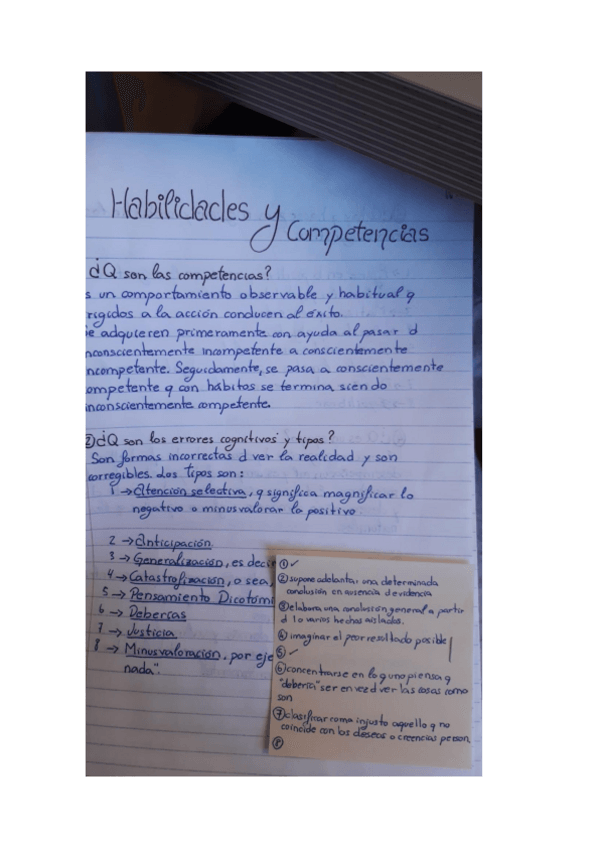 Habilidades y
Competencias
¿Q son las competencias?
s un comportamiento observable y habitual q
rigidos a la acción conducen al éxito.
e adquieren primeramente con ayuda al pasar d
nconscientemente incompetente a conscientemente
ncompetente. Seguidamente, se pasa a conscientemente
ompetente q con hábitos se termina siendo
inconscientemente competente.
2) ¿Q son los errores cognitivos y tipos?
Son formas incorrectas d ver la realidad y son
corregibles. Los tipos son:
1 → Atención selectiva, q significa magnificar lo
negativo o minusvalorar lo positivo.
2 → Anticipación.
3 → Generalización, es deci
4 → Catastrofización, o sea,
5 → Pensamiento Dicotómi
6 → Deberías
7 → Justicia
8 → Minusvaloración, por eje
nada".
① ✓
② supone adelantar una determinada
conclusión en ausencia d evidencia
③ elabora una conclusión general a partir
d 1 o varios hechos aislados.
④ imaginar el peor resultado posible
⑤ ✓
⑥ concentrarse en lo q uno piensa q
"debería" ser en vez d ver las cosas como
son
⑦ clasificar como injusto aquello q no
coincide con los deseos o creencias person.
⑧